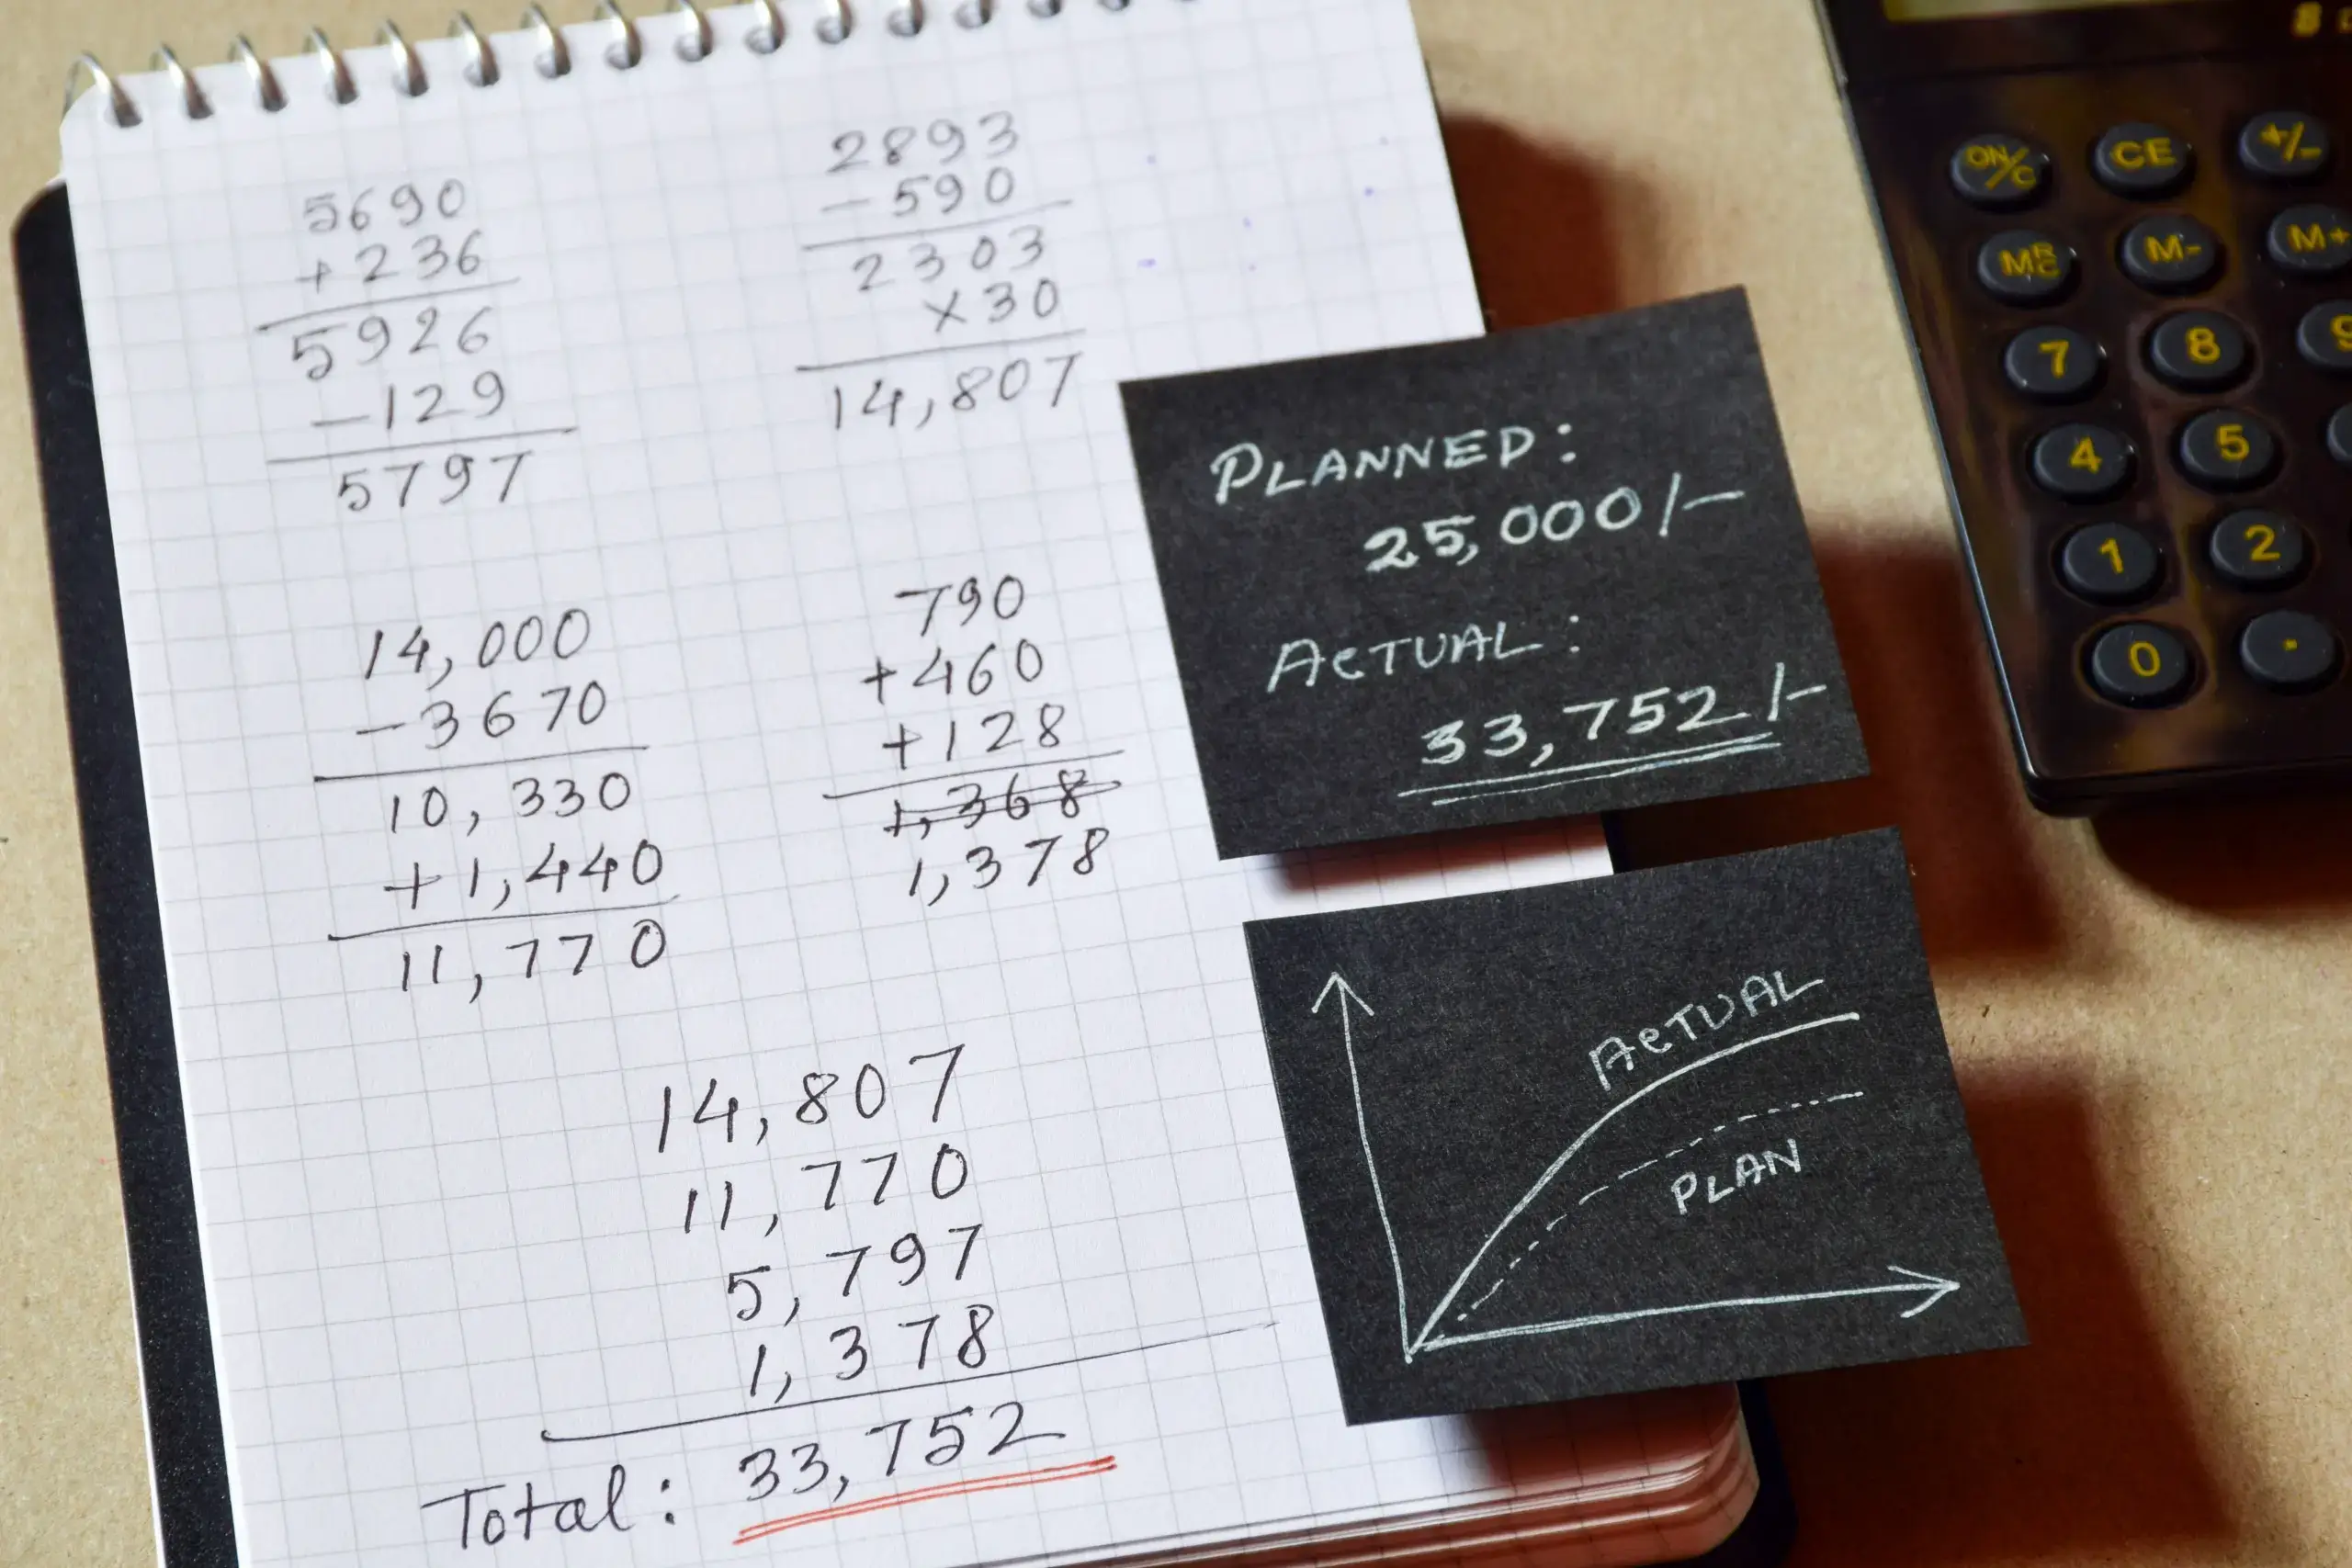 5690
+236
5926
-129
5797
2893
-590
2303
x30
14,807
14,000
-3670
10,330
+1,440
11,770
790
+460
+128
1,368
1,378
14,807
11,770
5,797
1,378
Total: 33,752
PLANNED:
25,000/-
ACTUAL:
33,752/-
ACTUAL
PLAN
8
ON/C CE +/-
MRC M- M+
7 8 9
4 5
1 2
0 .